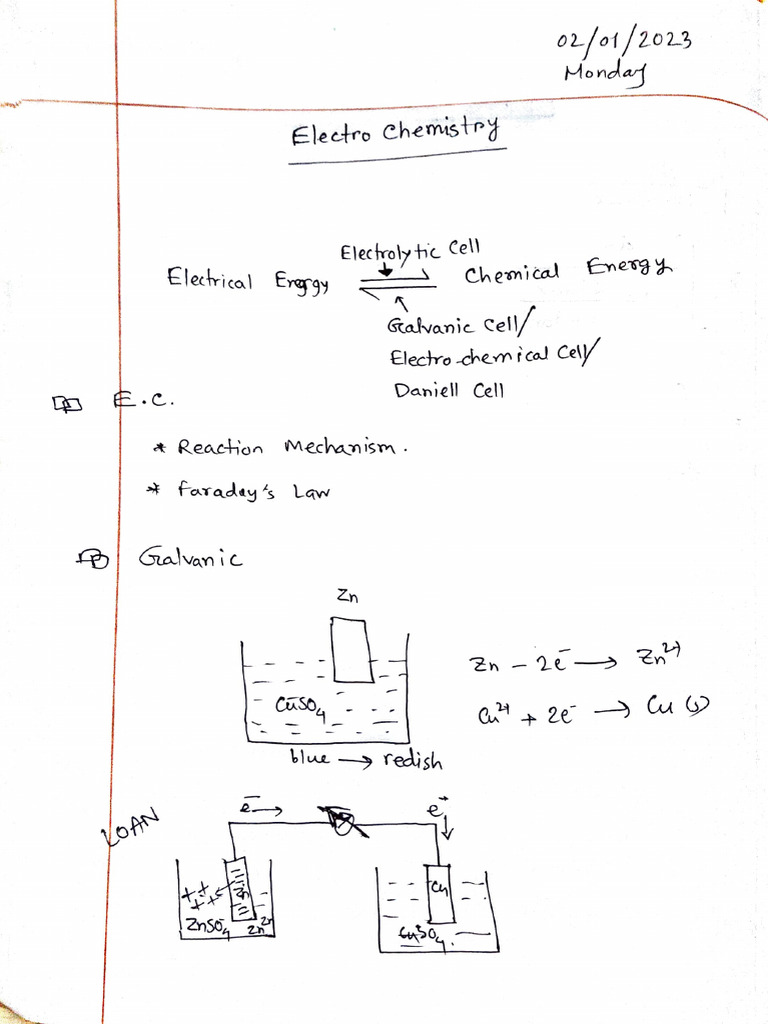 02/01/2023
Monday
Electro Chemistry
Electrolytic Cell
Electrical Energy ⇌ Chemical Energy
Galvanic Cell/
Electro-chemical Cell/
Daniell Cell
E.C.
* Reaction Mechanism.
* Faraday's Law
Galvanic
Zn
Zn - 2e⁻ → Zn²⁺
CuSO₄
Cu²⁺ + 2e⁻ → Cu (s)
blue → redish
LOAN
e⁻ →
e⁻
Zn
Cu
ZnSO₄
Zn²⁺
CuSO₄